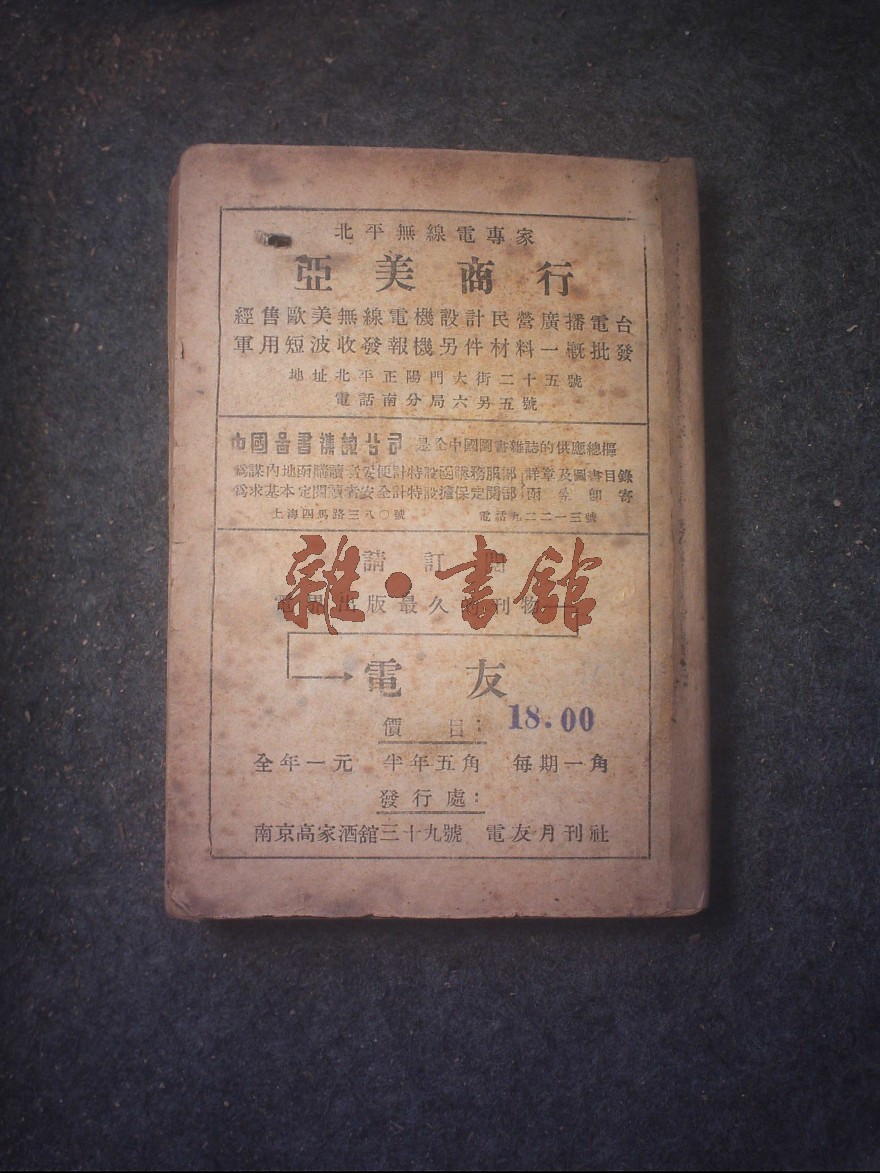 北平無線電專家
亞美商行
經售歐美無線電機設計民營廣播電台
軍用短波收發報機另件材料一概批發
地址北平正陽門大街二十五號
電話南分局六另五號
中國圖書雜誌公司 是全中國圖書雜誌的供應總樞
為謀內地函購讀者安便計特設函購務服部 詳章及圖書目錄
為求基本定閱讀者安全計特設擔保定閱部 函索卽寄
上海四馬路三八〇號 電話九二二一三號
請訂閱
雜·書館
電界出版最久的刊物——
→電友
價目：
18.00
全年一元 半年五角 每期一角
發行處：
南京高家酒舘三十九號 電友月刊社